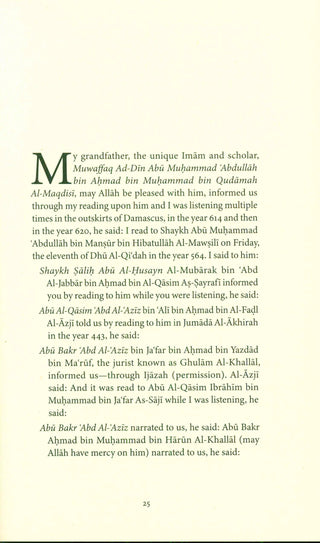 My grandfather, the unique Imām and scholar,
Muwaffaq Ad-Dīn Abū Muḥammad ʿAbdullāh
bin Aḥmad bin Muḥammad bin Qudāmah
Al-Maqdisī, may Allāh be pleased with him, informed us
through my reading upon him and I was listening multiple
times in the outskirts of Damascus, in the year 614 and then
in the year 620, he said: I read to Shaykh Abū Muḥammad
ʿAbdullāh bin Manṣūr bin Hibatullāh Al-Mawṣilī on Friday,
the eleventh of Dhū Al-Qiʿdah in the year 564. I said to him:
Shaykh Ṣāliḥ Abū Al-Ḥusayn Al-Mubārak bin ʿAbd
Al-Jabbār bin Aḥmad bin Al-Qāsim Aṣ-Ṣayrafī informed
you by reading to him while you were listening, he said:
Abū Al-Qāsim ʿAbd Al-ʿAzīz bin ʿAlī bin Aḥmad bin Al-Faḍl
Al-Āzjī told us by reading to him in Jumādā Al-Ākhirah
in the year 443, he said:
Abū Bakr ʿAbd Al-ʿAzīz bin Jaʿfar bin Aḥmad bin Yazdād
bin Maʿrūf, the jurist known as Ghulām Al-Khallāl,
informed us—through Ijāzah (permission). Al-Āzjī
said: And it was read to Abū Al-Qāsim Ibrāhīm bin
Muḥammad bin Jaʿfar As-Sājī while I was listening, he
said:
Abū Bakr ʿAbd Al-ʿAzīz narrated to us, he said: Abū Bakr
Aḥmad bin Muḥammad bin Hārūn Al-Khallāl (may
Allāh have mercy on him) narrated to us, he said:
25